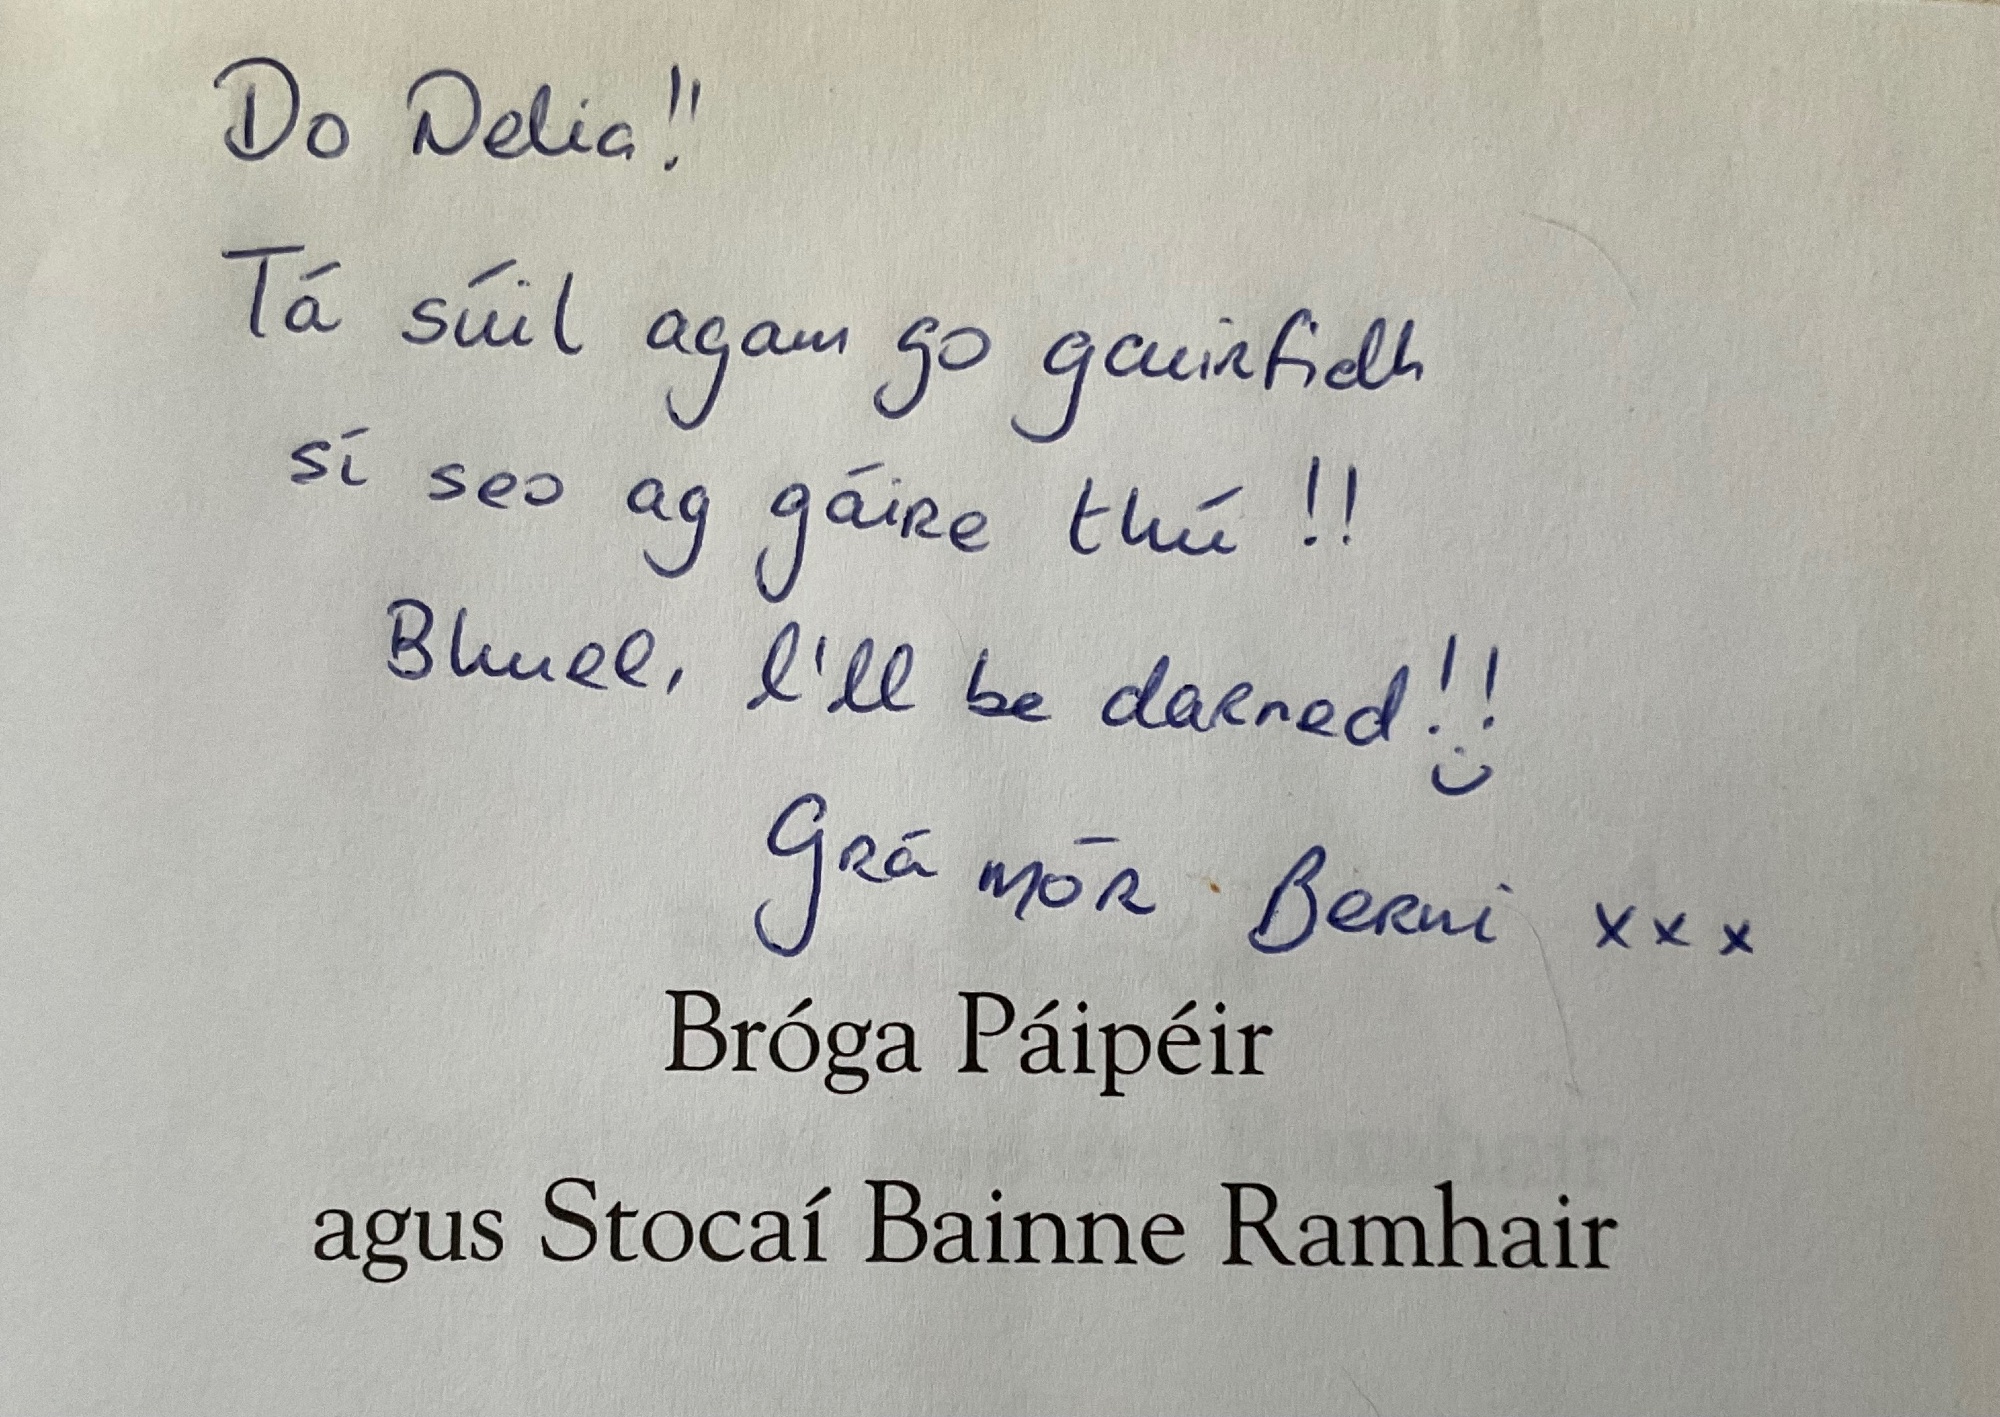 Do Delia!!
Tá súil agam go gcuirfidh
sí seo ag gáire thú!!
Bhuel, I'll be darned!!
Grá mór Berni xxx
Bróga Páipéir
agus Stocaí Bainne Ramhair